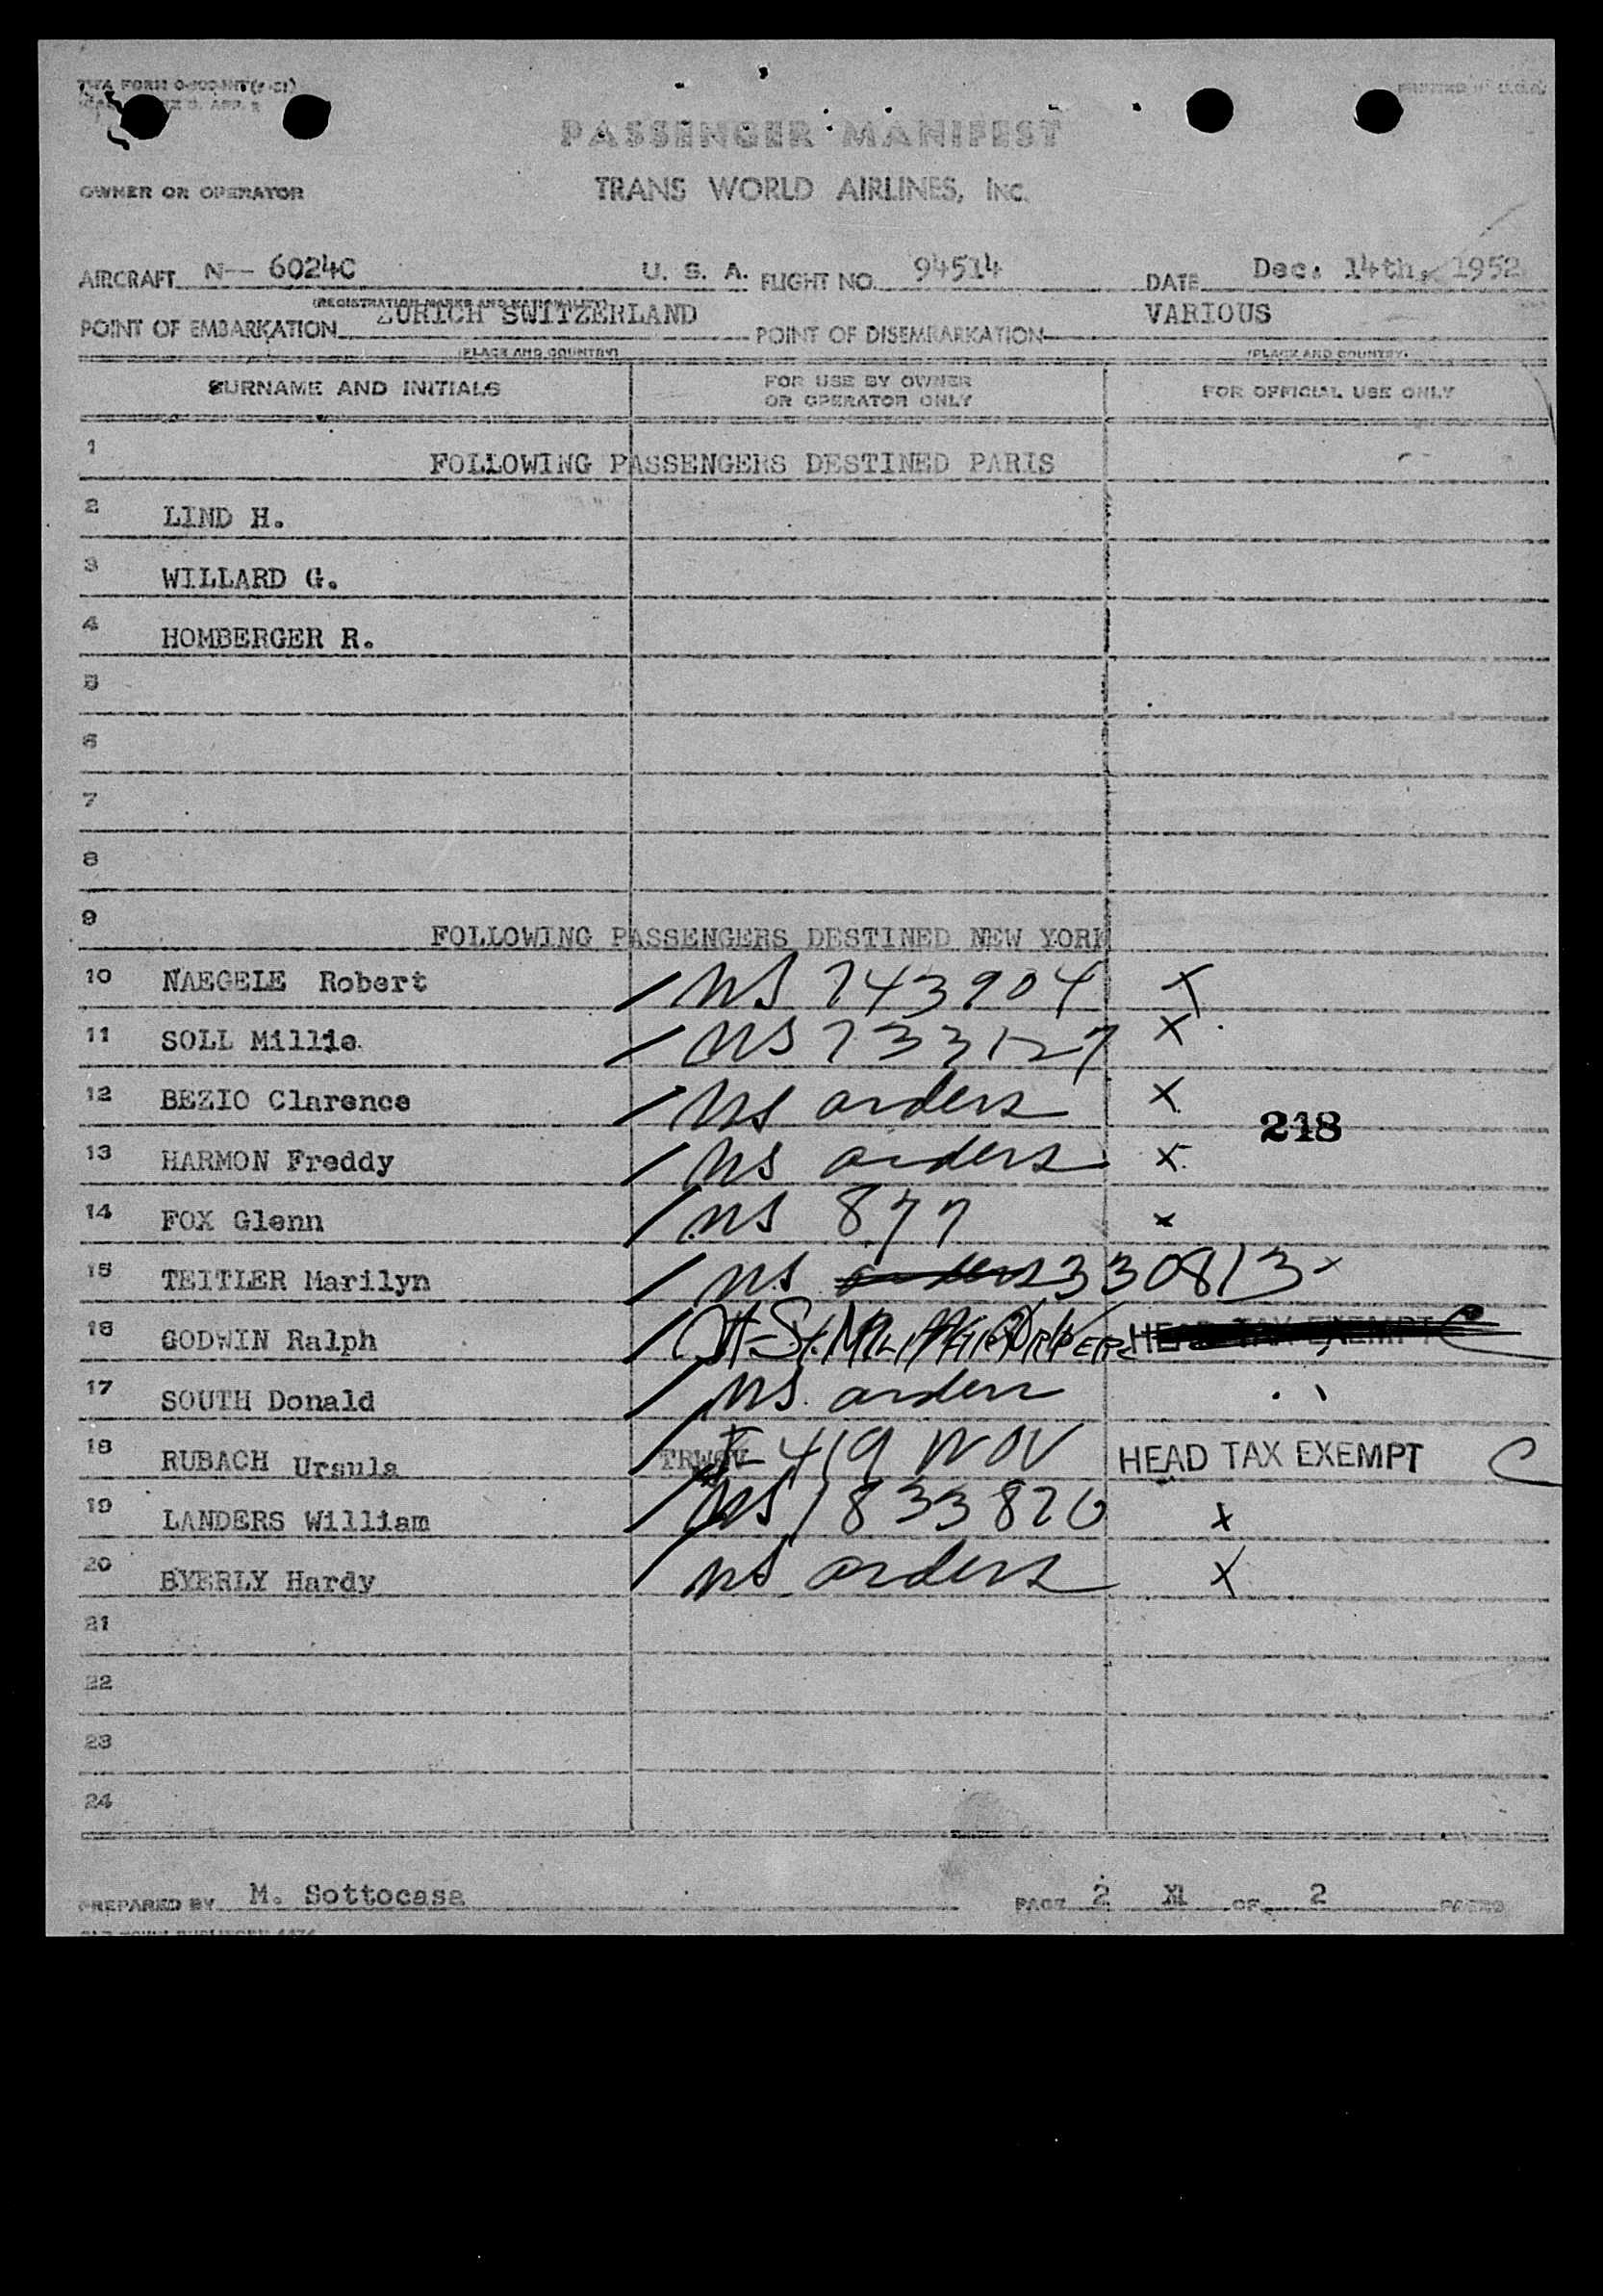 PRINTED IN U.S.A.
PASSENGER MANIFEST
OWNER OR OPERATOR TRANS WORLD AIRLINES, INC.
AIRCRAFT N— 6024C U. S. A. FLIGHT NO. 94514 DATE Dec. 14th, 1952
(REGISTRATION MARKS AND NATIONALITY)
POINT OF EMBARKATION ZURICH SWITZERLAND POINT OF DISEMBARKATION VARIOUS
(PLACE AND COUNTRY) (PLACE AND COUNTRY)
SURNAME AND INITIALS FOR USE BY OWNER OR OPERATOR ONLY FOR OFFICIAL USE ONLY
1 FOLLOWING PASSENGERS DESTINED PARIS
2 LIND H.
3 WILLARD G.
4 HOMBERGER R.
5
6
7
8
9 FOLLOWING PASSENGERS DESTINED NEW YORK
10 NAEGELE Robert / NS 743904 X
11 SOLL Millie / NS 733127 X
12 BEZIO Clarence / NS orders X
218
13 HARMON Freddy / NS orders X
14 FOX Glenn / NS 877 X
15 TEITLER Marilyn / NS orders 330813 X
16 GODWIN Ralph / HEAD TAX EXEMPT C
17 SOUTH Donald / NS orders
18 RUBACH Ursula / 419 HEAD TAX EXEMPT C
19 LANDERS William / NS 833820 X
20 BYERLY Hardy / NS orders X
21
22
23
24
PREPARED BY M. Sottocasa PAGE 2 OF 2 PAGES